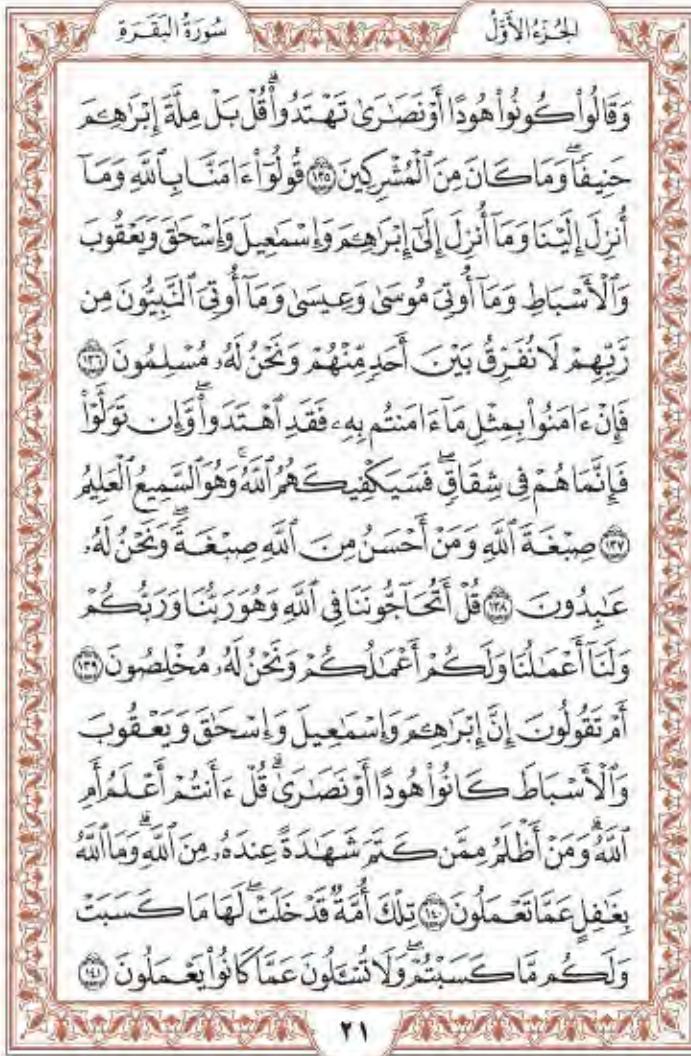 الجُزْءُ الأَوَّلُ سُورَةُ البَقَرَةِ
وَقَالُواْ كُونُواْ هُودًا أَوْ نَصَٰرَىٰ تَهْتَدُواْۗ قُلْ بَلْ مِلَّةَ إِبْرَٰهِـۧمَ
حَنِيفٗاۖ وَمَا كَانَ مِنَ ٱلْمُشْرِكِينَ ١٣٥ قُولُوٓاْ ءَامَنَّا بِٱللَّهِ وَمَآ
أُنزِلَ إِلَيْنَا وَمَآ أُنزِلَ إِلَىٰٓ إِبْرَٰهِـۧمَ وَإِسْمَٰعِيلَ وَإِسْحَٰقَ وَيَعْقُوبَ
وَٱلْأَسْبَاطِ وَمَآ أُوتِيَ مُوسَىٰ وَعِيسَىٰ وَمَآ أُوتِيَ ٱلنَّبِيُّونَ مِن
رَّبِّهِمْ لَا نُفَرِّقُ بَيْنَ أَحَدٖ مِّنْهُمْ وَنَحْنُ لَهُۥ مُسْلِمُونَ ١٣٦
فَإِنْ ءَامَنُواْ بِمِثْلِ مَآ ءَامَنتُم بِهِۦ فَقَدِ ٱهْتَدَواْۖ وَّإِن تَوَلَّوْاْ
فَإِنَّمَا هُمْ فِي شِقَاقٖۖ فَسَيَكْفِيكَهُمُ ٱللَّهُۚ وَهُوَ ٱلسَّمِيعُ ٱلْعَلِيمُ
١٣٧ صِبْغَةَ ٱللَّهِ وَمَنْ أَحْسَنُ مِنَ ٱللَّهِ صِبْغَةٗۖ وَنَحْنُ لَهُۥ
عَٰبِدُونَ ١٣٨ قُلْ أَتُحَآجُّونَنَا فِي ٱللَّهِ وَهُوَ رَبُّنَا وَرَبُّكُمْ
وَلَنَآ أَعْمَٰلُنَا وَلَكُمْ أَعْمَٰلُكُمْ وَنَحْنُ لَهُۥ مُخْلِصُونَ ١٣٩
أَمْ تَقُولُونَ إِنَّ إِبْرَٰهِـۧمَ وَإِسْمَٰعِيلَ وَإِسْحَٰقَ وَيَعْقُوبَ
وَٱلْأَسْبَاطَ كَانُواْ هُودًا أَوْ نَصَٰرَىٰۗ قُلْ ءَأَنتُمْ أَعْلَمُ أَمِ
ٱللَّهُۗ وَمَنْ أَظْلَمُ مِمَّن كَتَمَ شَهَٰدَةً عِندَهُۥ مِنَ ٱللَّهِۗ وَمَا ٱللَّهُ
بِغَٰفِلٍ عَمَّا تَعْمَلُونَ ١٤٠ تِلْكَ أُمَّةٞ قَدْ خَلَتْۖ لَهَا مَا كَسَبَتْ
وَلَكُم مَّا كَسَبْتُمْۖ وَلَا تُسْـَٔلُونَ عَمَّا كَانُواْ يَعْمَلُونَ ١٤١
٢١